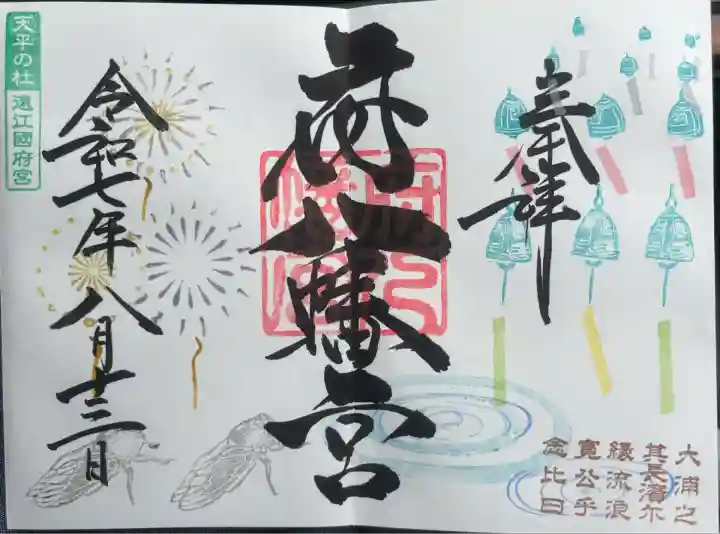 奉拝
大浦之
其長濱尓
縁流浪
寛公乎
念比日
府八幡宮
令和七年八月十三日
天平の杜
遠江國府宮